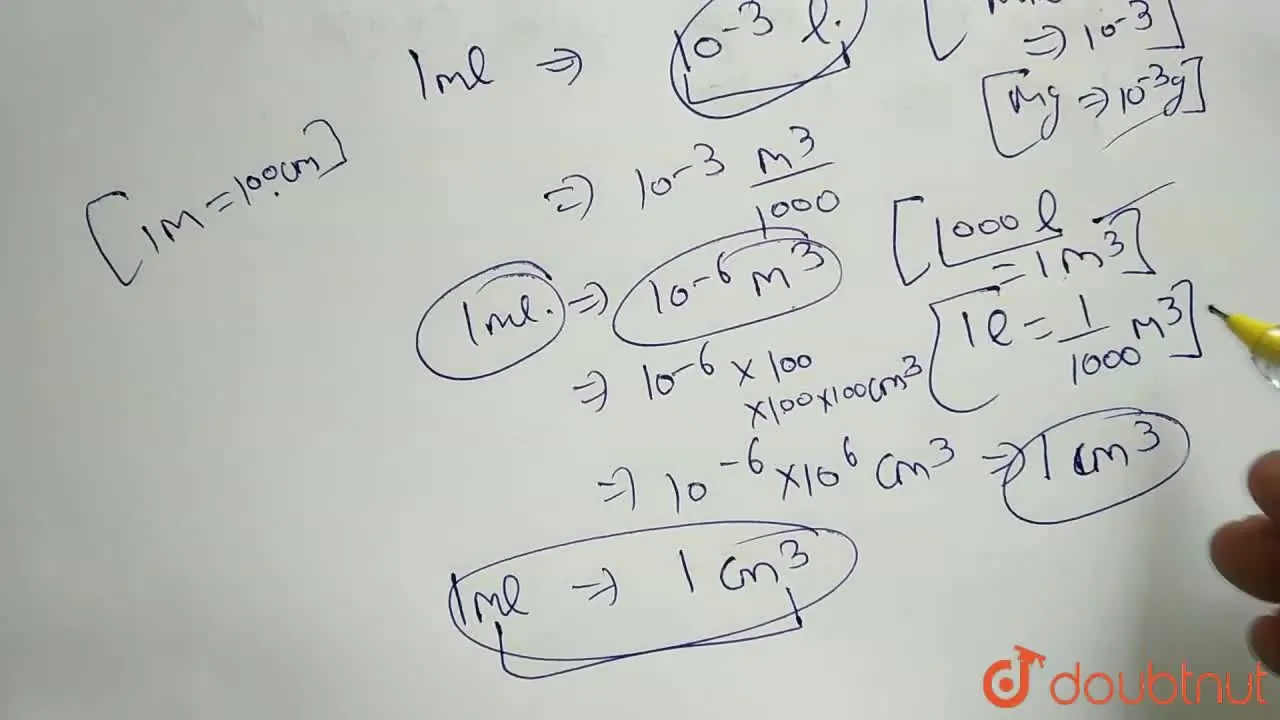 1ml ⇒ 10⁻³ l.
⇒ 10⁻³]
[mg ⇒ 10⁻³g]
[1m = 100cm]
⇒ 10⁻³ m³/1000
[1000 l
= 1m³]
1ml. ⇒ 10⁻⁶ m³
[1l = 1/1000 m³]
⇒ 10⁻⁶ × 100
×100×100cm³
⇒ 10⁻⁶ × 10⁶ cm³ ⇒ 1 cm³
1ml ⇒ 1 cm³
doubtnut